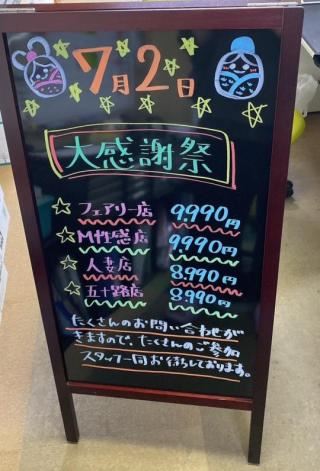 7月2日
大感謝祭
☆フェアリー店 9,990円
☆M性感店 9,990円
☆人妻店 8,990円
☆五十路店 8,990円
たくさんのお問い合わせが
きますので、たくさんのご参加
スタッフ一同お待ちしております。